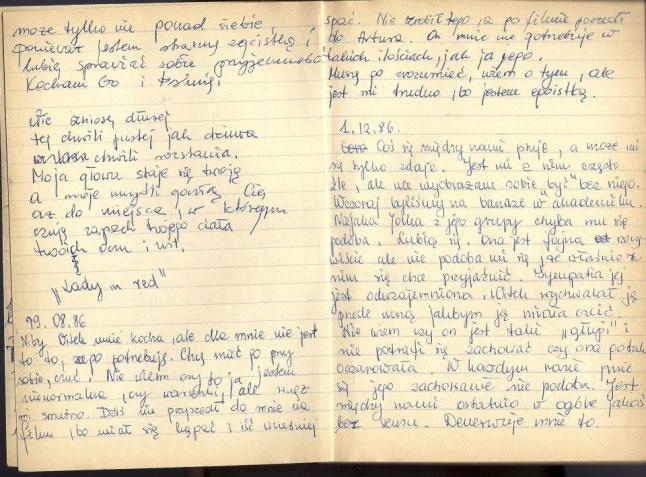 może tylko nie ponad siebie,
ponieważ jestem straszną egoistką i
lubię sprawiać sobie przyjemność
Kocham Go i tęsknię.
Nie zniosę dłużej
tej chwili pustej jak dziura
chwili rozstania.
Moja głowa staje się twoją
a moje myśli gonią Cię
aż do miejsca, w którym
czują zapach twojego ciała
twoich rąk i ust.
"Lady in red"
29.08.86
Niby Witek mnie kocha, ale dla mnie nie jest
to to, czego potrzebuję. Chcę mieć go przy
sobie, czuć. Nie wiem czy to ja jestem
nienormalna, czy wariatka, ale wciąż
mi smutno. Dziś nie przyszedł do mnie na
film, bo miał się kąpać i iść wcześniej
spać. Nie zrobił tego, a po filmie poszedł
do Artura. On mnie nie potrzebuje w
takich ilościach, jak ja jego.
Muszę go zrozumieć, wiem o tym, ale
jest mi trudno, bo jestem egoistką.
1.12.86.
Coś się między nami psuje, a może mi
się tylko zdaje. Jest mi z nim często
źle, ale nie wyobrażam sobie "być" bez niego.
Wczoraj byliśmy na bandżo w akademiku.
Niejaka Jolka z jego grupy chyba mu się
podoba. Lubią się. Ona jest fajna
ale nie podoba mi się, że właśnie z
nim się chce przyjaźnić. Sympatia jej
jest odwzajemniona. Witek wychwalał ją
przede mną jakbym ją miała czcić.
Nie wiem czy on jest taki "głupi" i
nie potrafi się zachować czy ona go tak
oczarowała. W każdym razie mnie
się jego zachowanie nie podoba. Jest
między nami ostatnio w ogóle jakoś
bez sensu. Denerwuje mnie to.